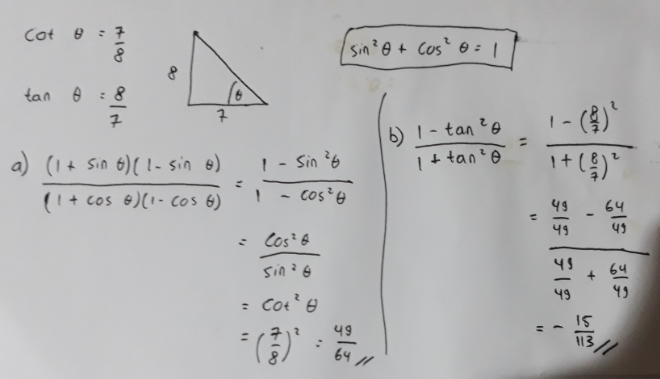 cot θ = 7/8
tan θ = 8/7
8
θ
7
sin²θ + cos²θ = 1
a) (1 + sin θ)(1 - sin θ) / (1 + cos θ)(1 - cos θ) = 1 - sin²θ / 1 - cos²θ
= cos²θ / sin²θ
= cot²θ
= (7/8)² = 49/64 //
b) 1 - tan²θ / 1 + tan²θ = 1 - (8/7)² / 1 + (8/7)²
= 49/49 - 64/49 / 49/49 + 64/49
= - 15/113 //